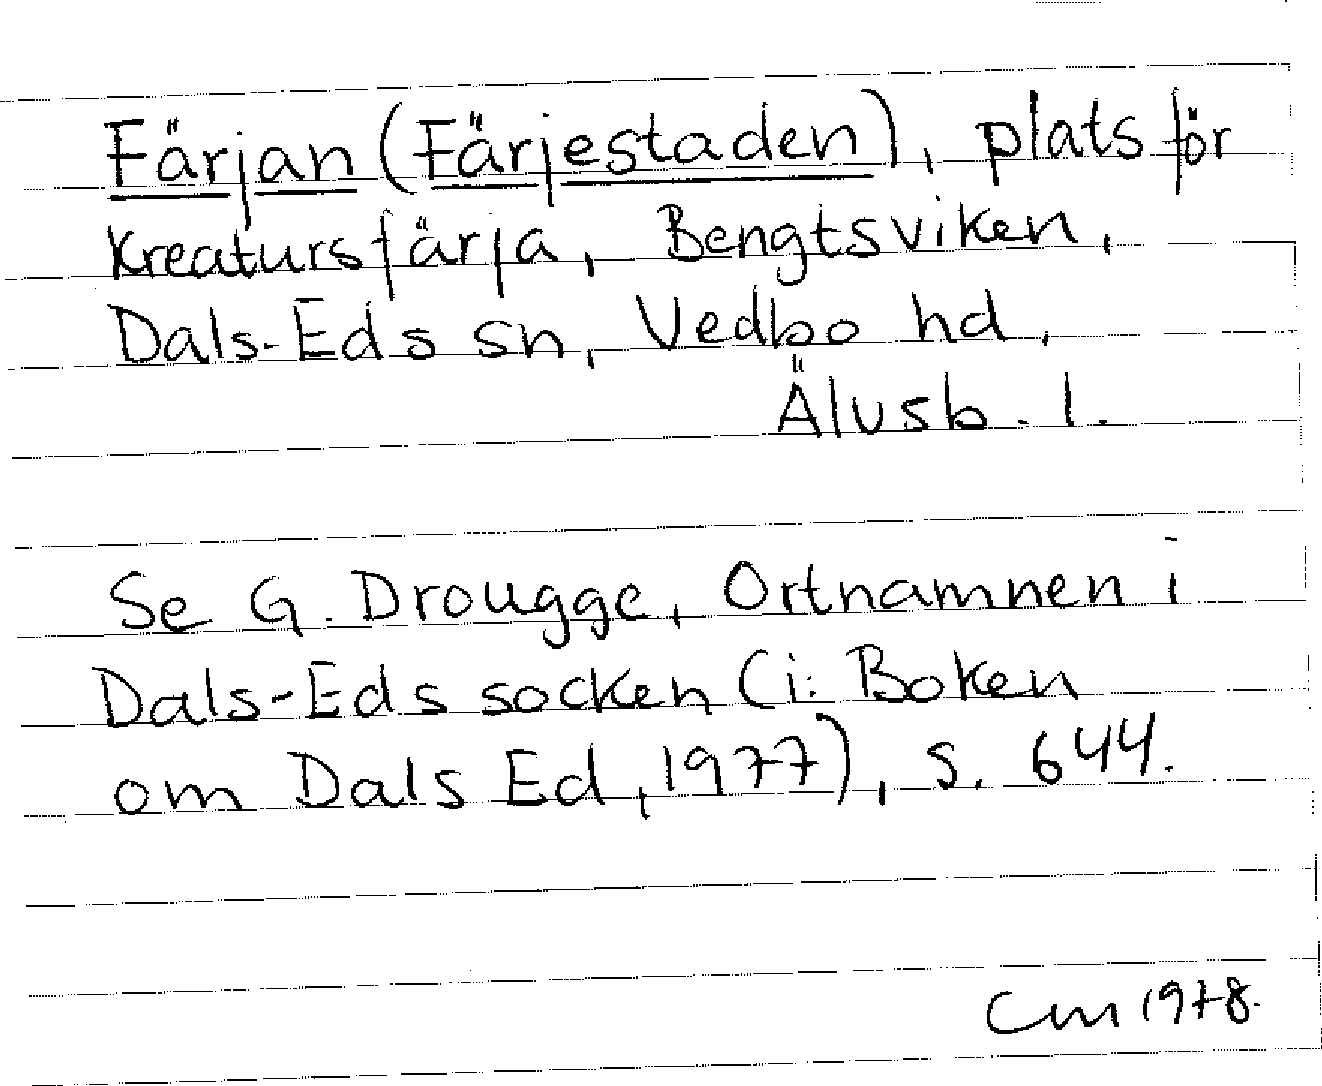 Färjan (Färjestaden), plats för
kreatursfärja, Bengtsviken,
Dals-Eds sn, Vedbo hd,
Älvsb. l.
Se G. Drougge, Ortnamnen i
Dals-Eds socken (i: Boken
om Dals Ed, 1977), s. 644.
Cm 1978.